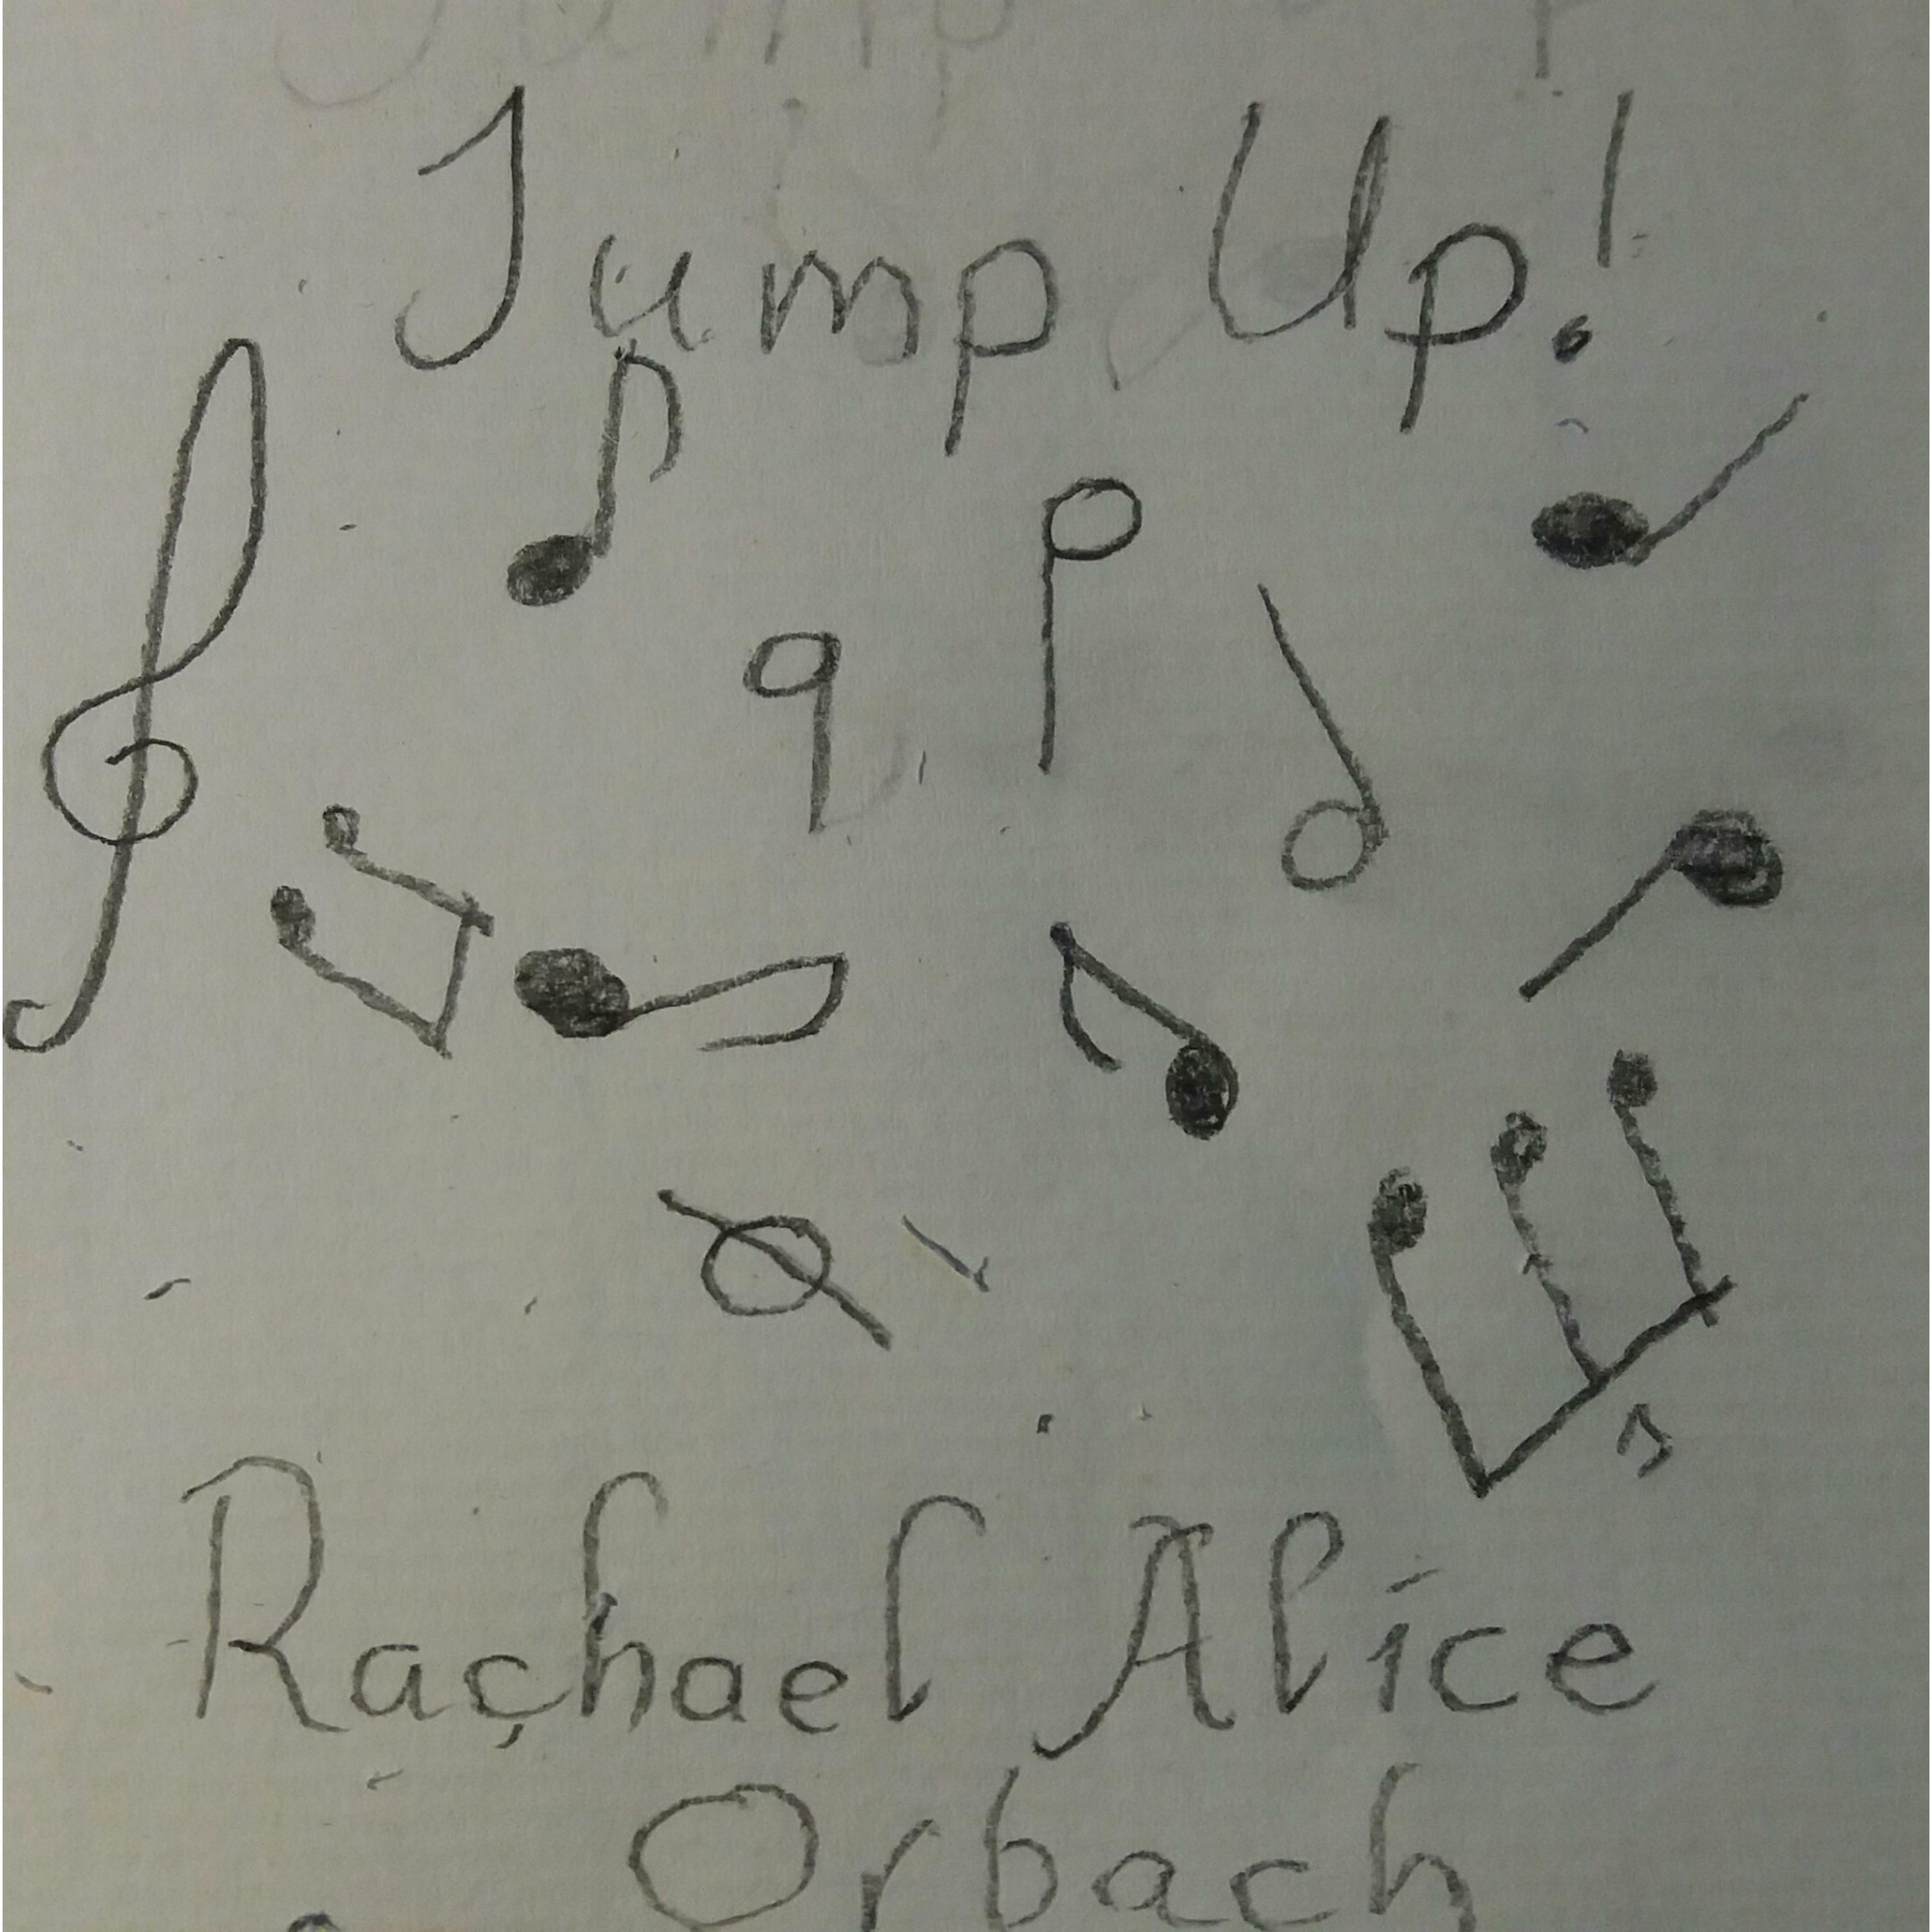 Jump Up!
Rachael Alice
Orbach